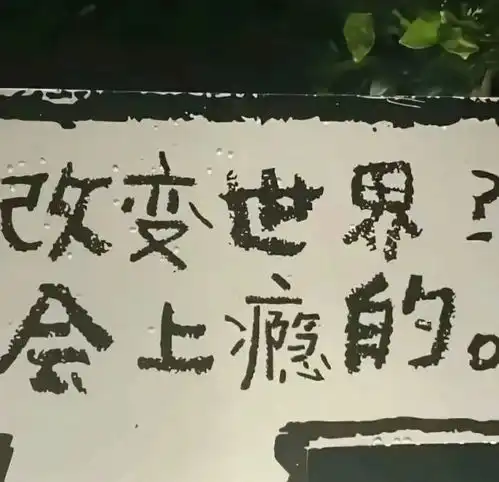 改变世界？
会上瘾的。